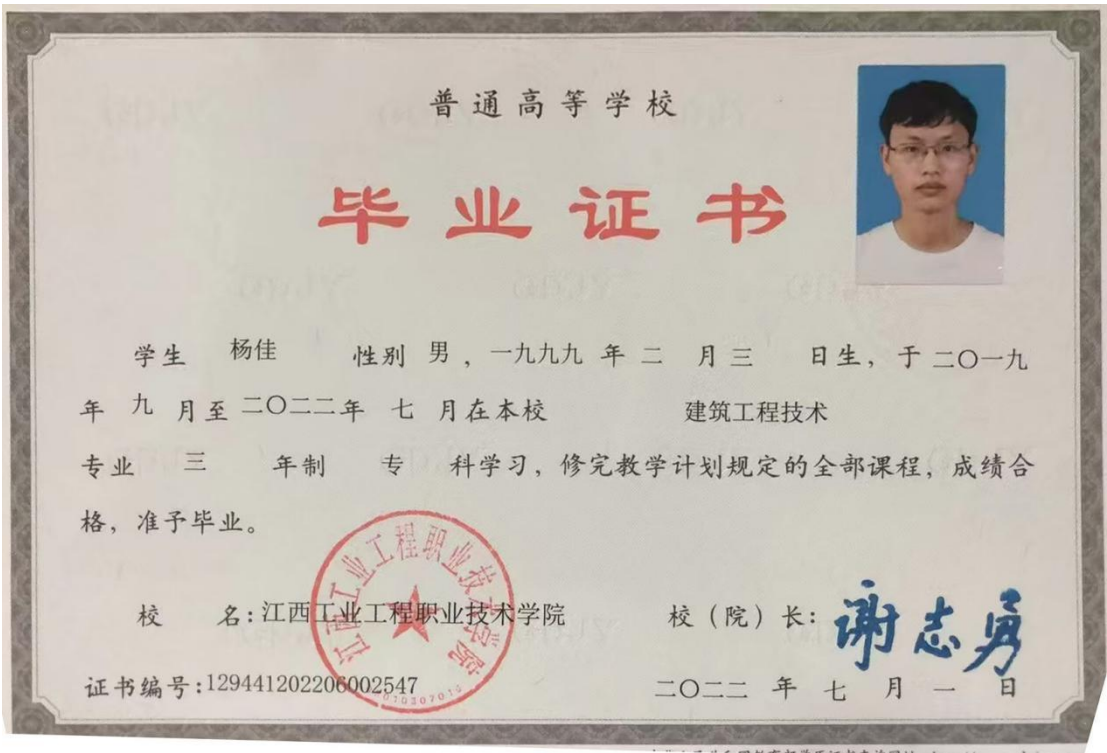 普通高等学校
毕业证书
学生 杨佳 性别 男，一九九九 年 二 月 三 日生，于 二〇一九
年 九 月至 二〇二二 年 七 月在本校 建筑工程技术
专业 三 年制 专 科学习，修完教学计划规定的全部课程，成绩合
格，准予毕业。
江西工业工程职业技术学院
校 名：江西工业工程职业技术学院 校（院）长：谢志勇
证书编号：129441202206002547 二〇二二 年 七 月 一 日